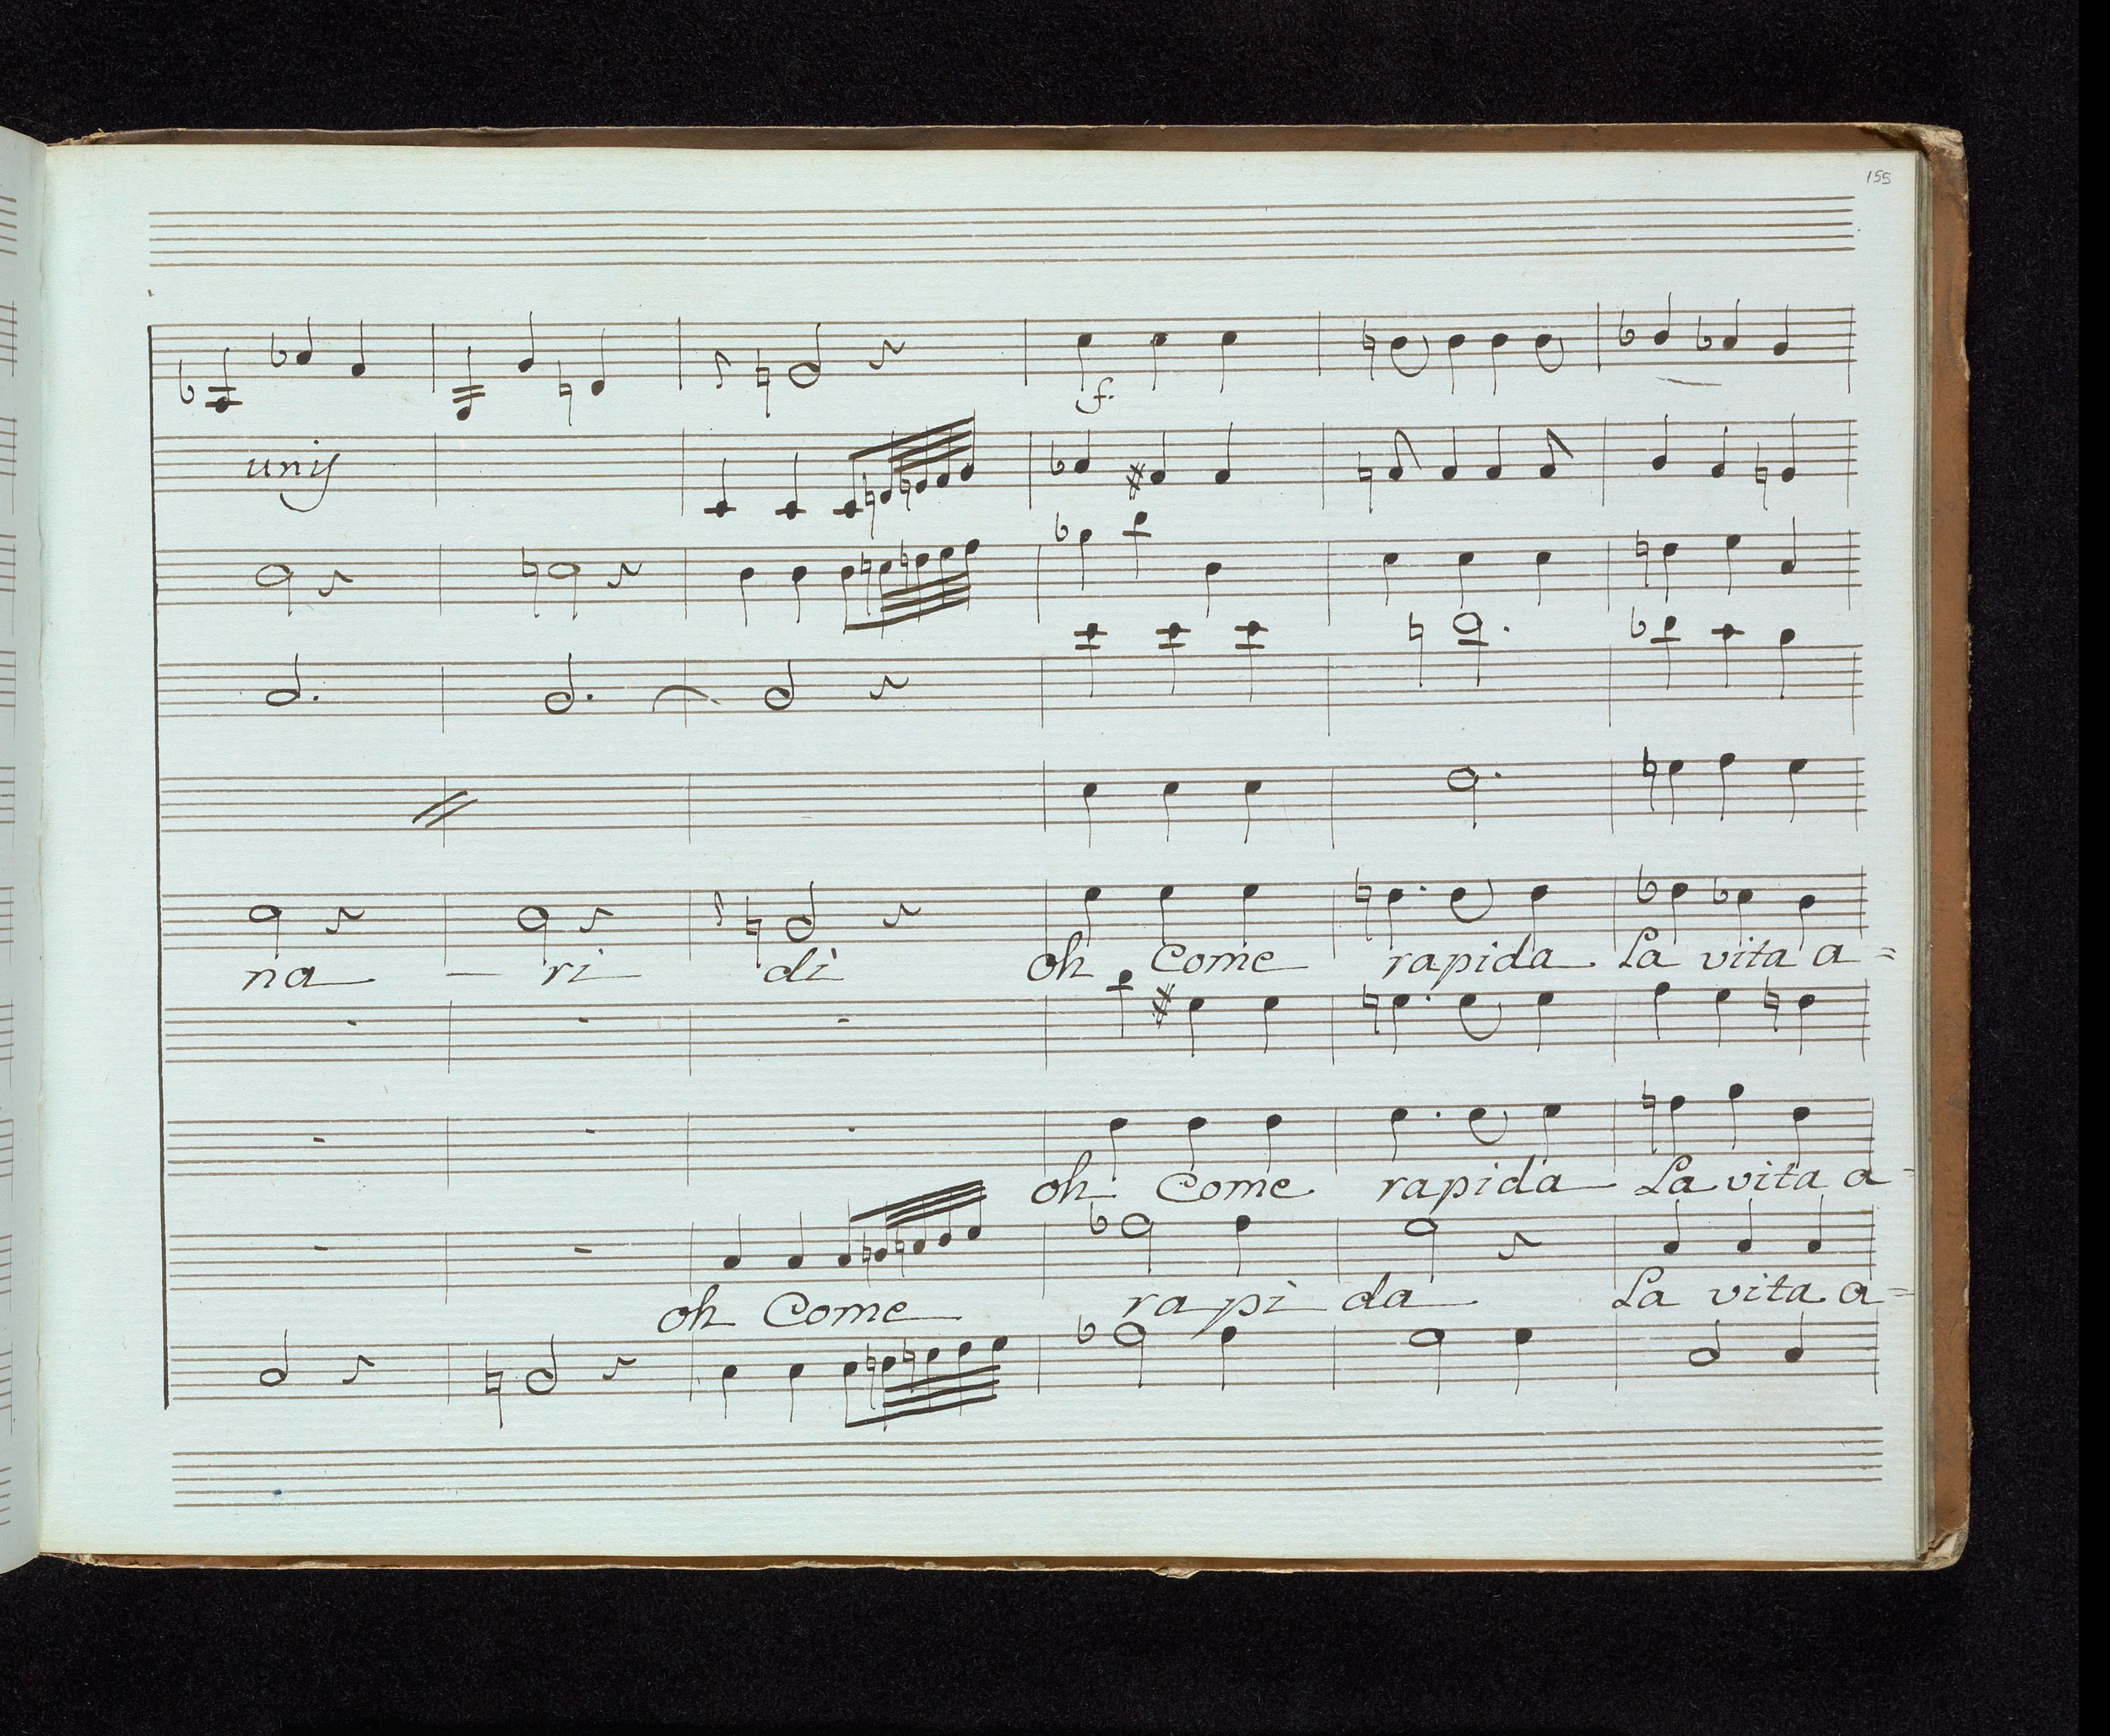 155
f.
unis
na — ri di oh Come rapida La vita a=
oh Come rapida La vita a=
oh Come rapi da La vita a=